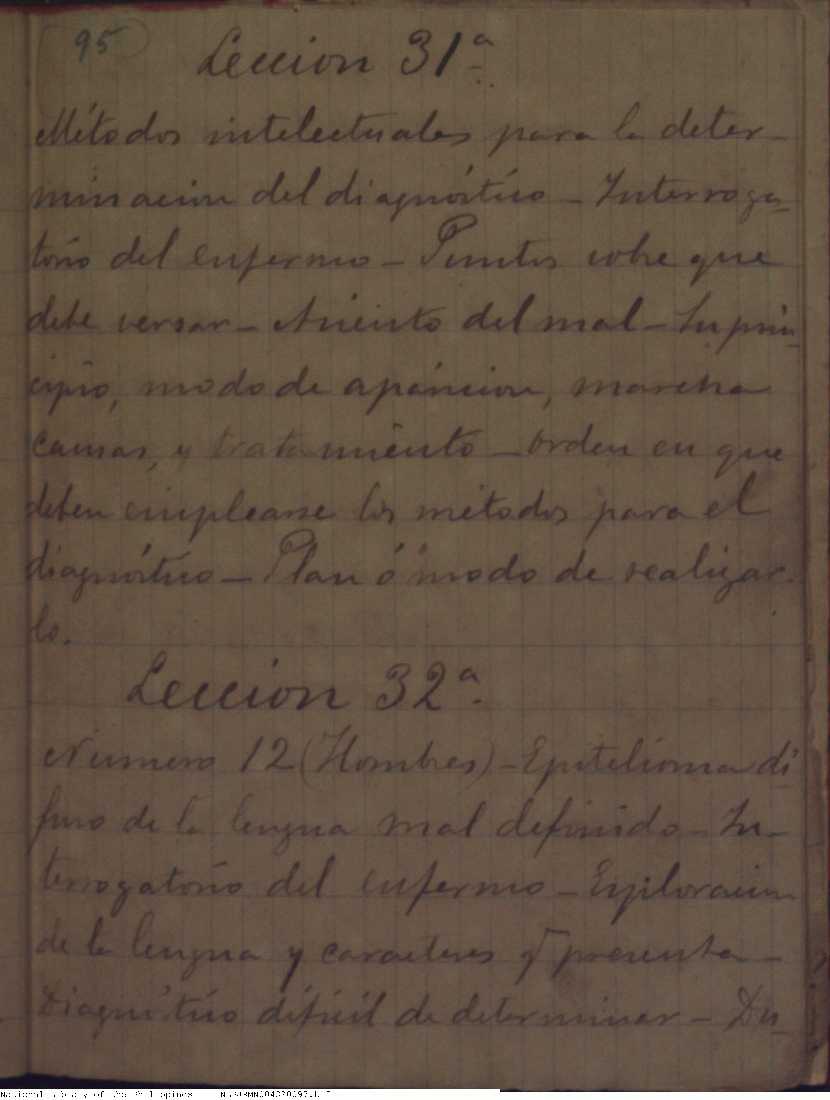 95
Leccion 31ª
Métodos intelectuales para la deter-
minacion del diagnóstico - Interroga-
torio del enfermo - Puntos sobre que
debe versar - Asiento del mal - Su prin-
cipio, modo de aparicion, marcha
causas, y tratamiento - Orden en que
deben emplearse los métodos para el
diagnóstico - Plan ó modo de realizar-
lo.
Leccion 32ª
Numero 12 (Hombres) - Epitelioma di-
fuso de la lengua mal definido - In-
terrogatorio del enfermo - Exploracion
de la lengua y caracteres q presenta -
Diagnóstico difícil de determinar - Du-
National Library of the Philippines